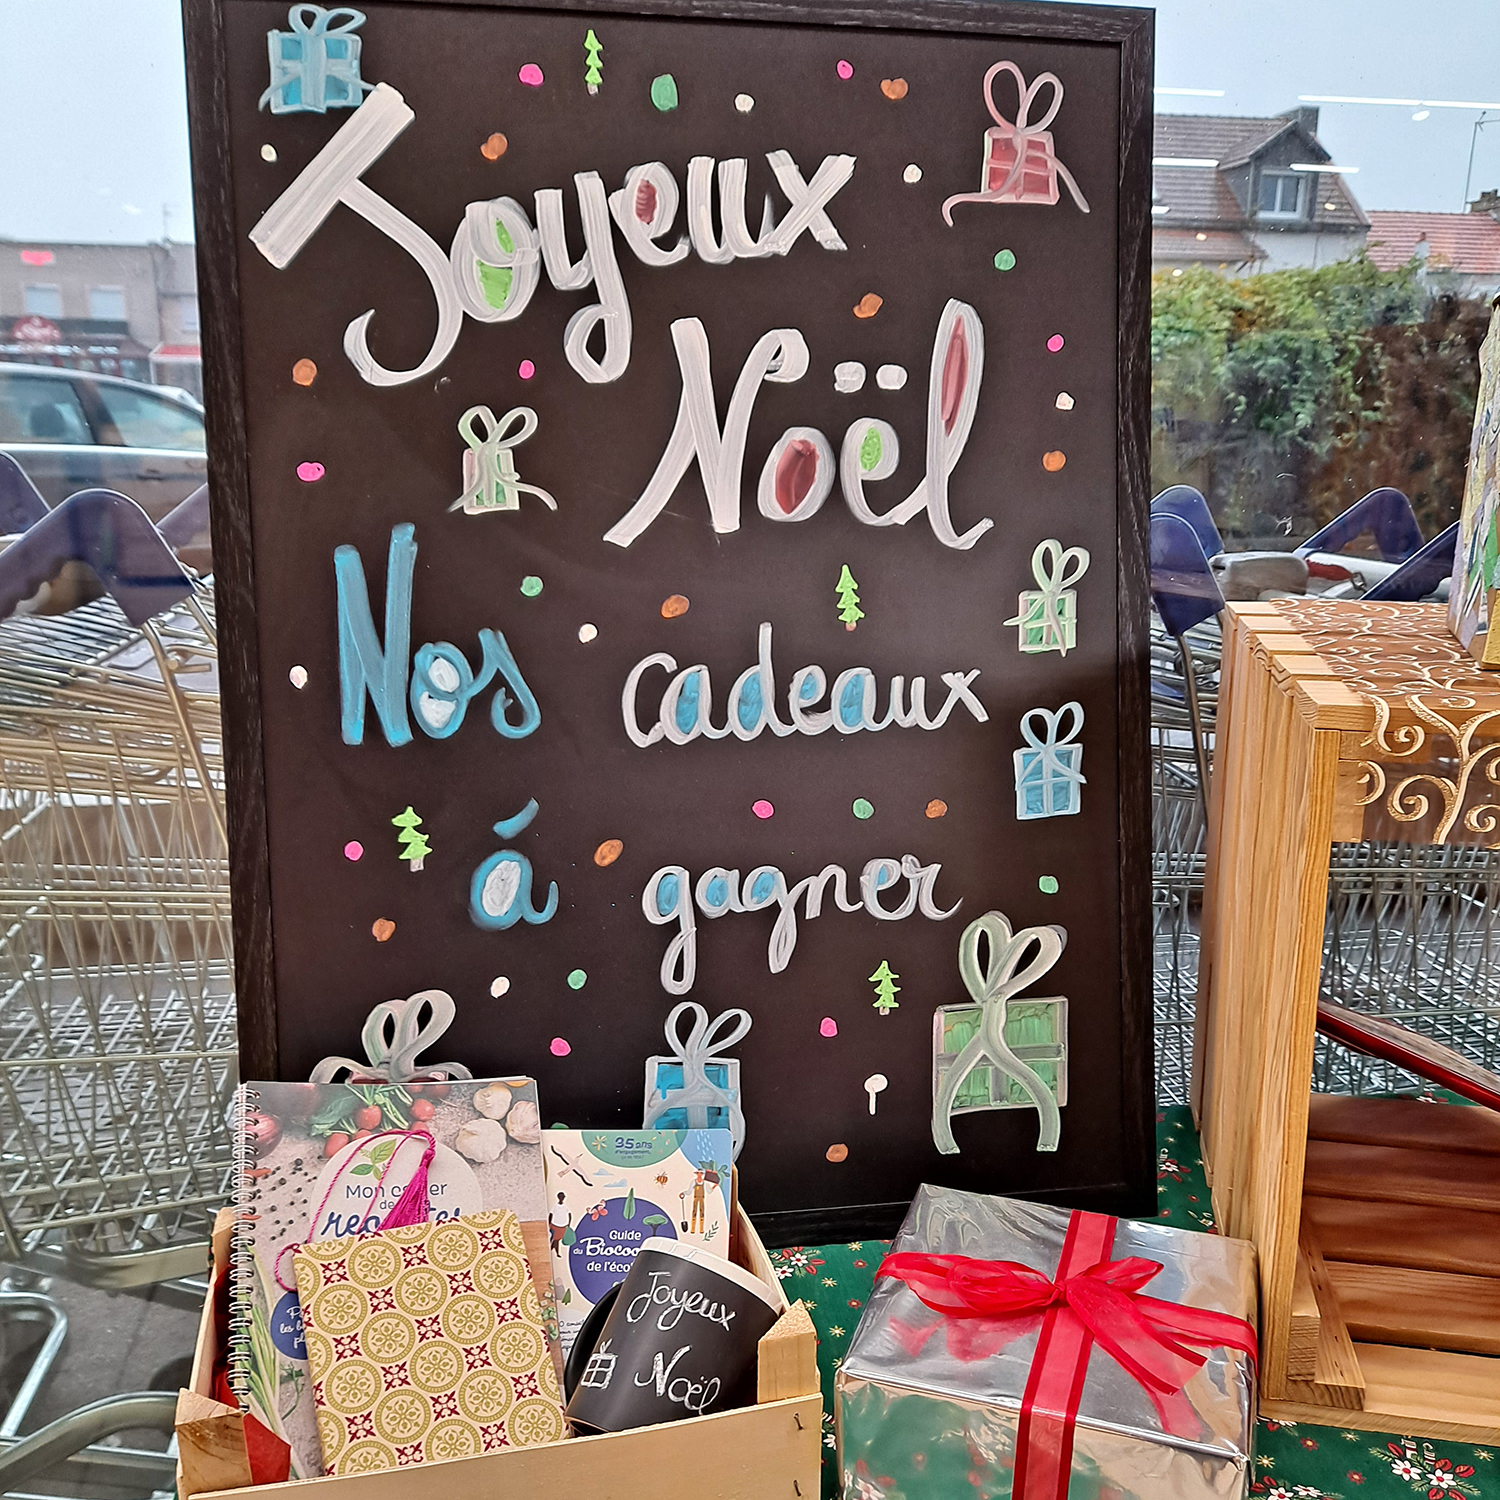 Joyeux
Noël
Nos cadeaux
á gagner
Mon
de
35 ans
d'engagement,
Guide
du Biocoo
de l'éco
Joyeux
Noël